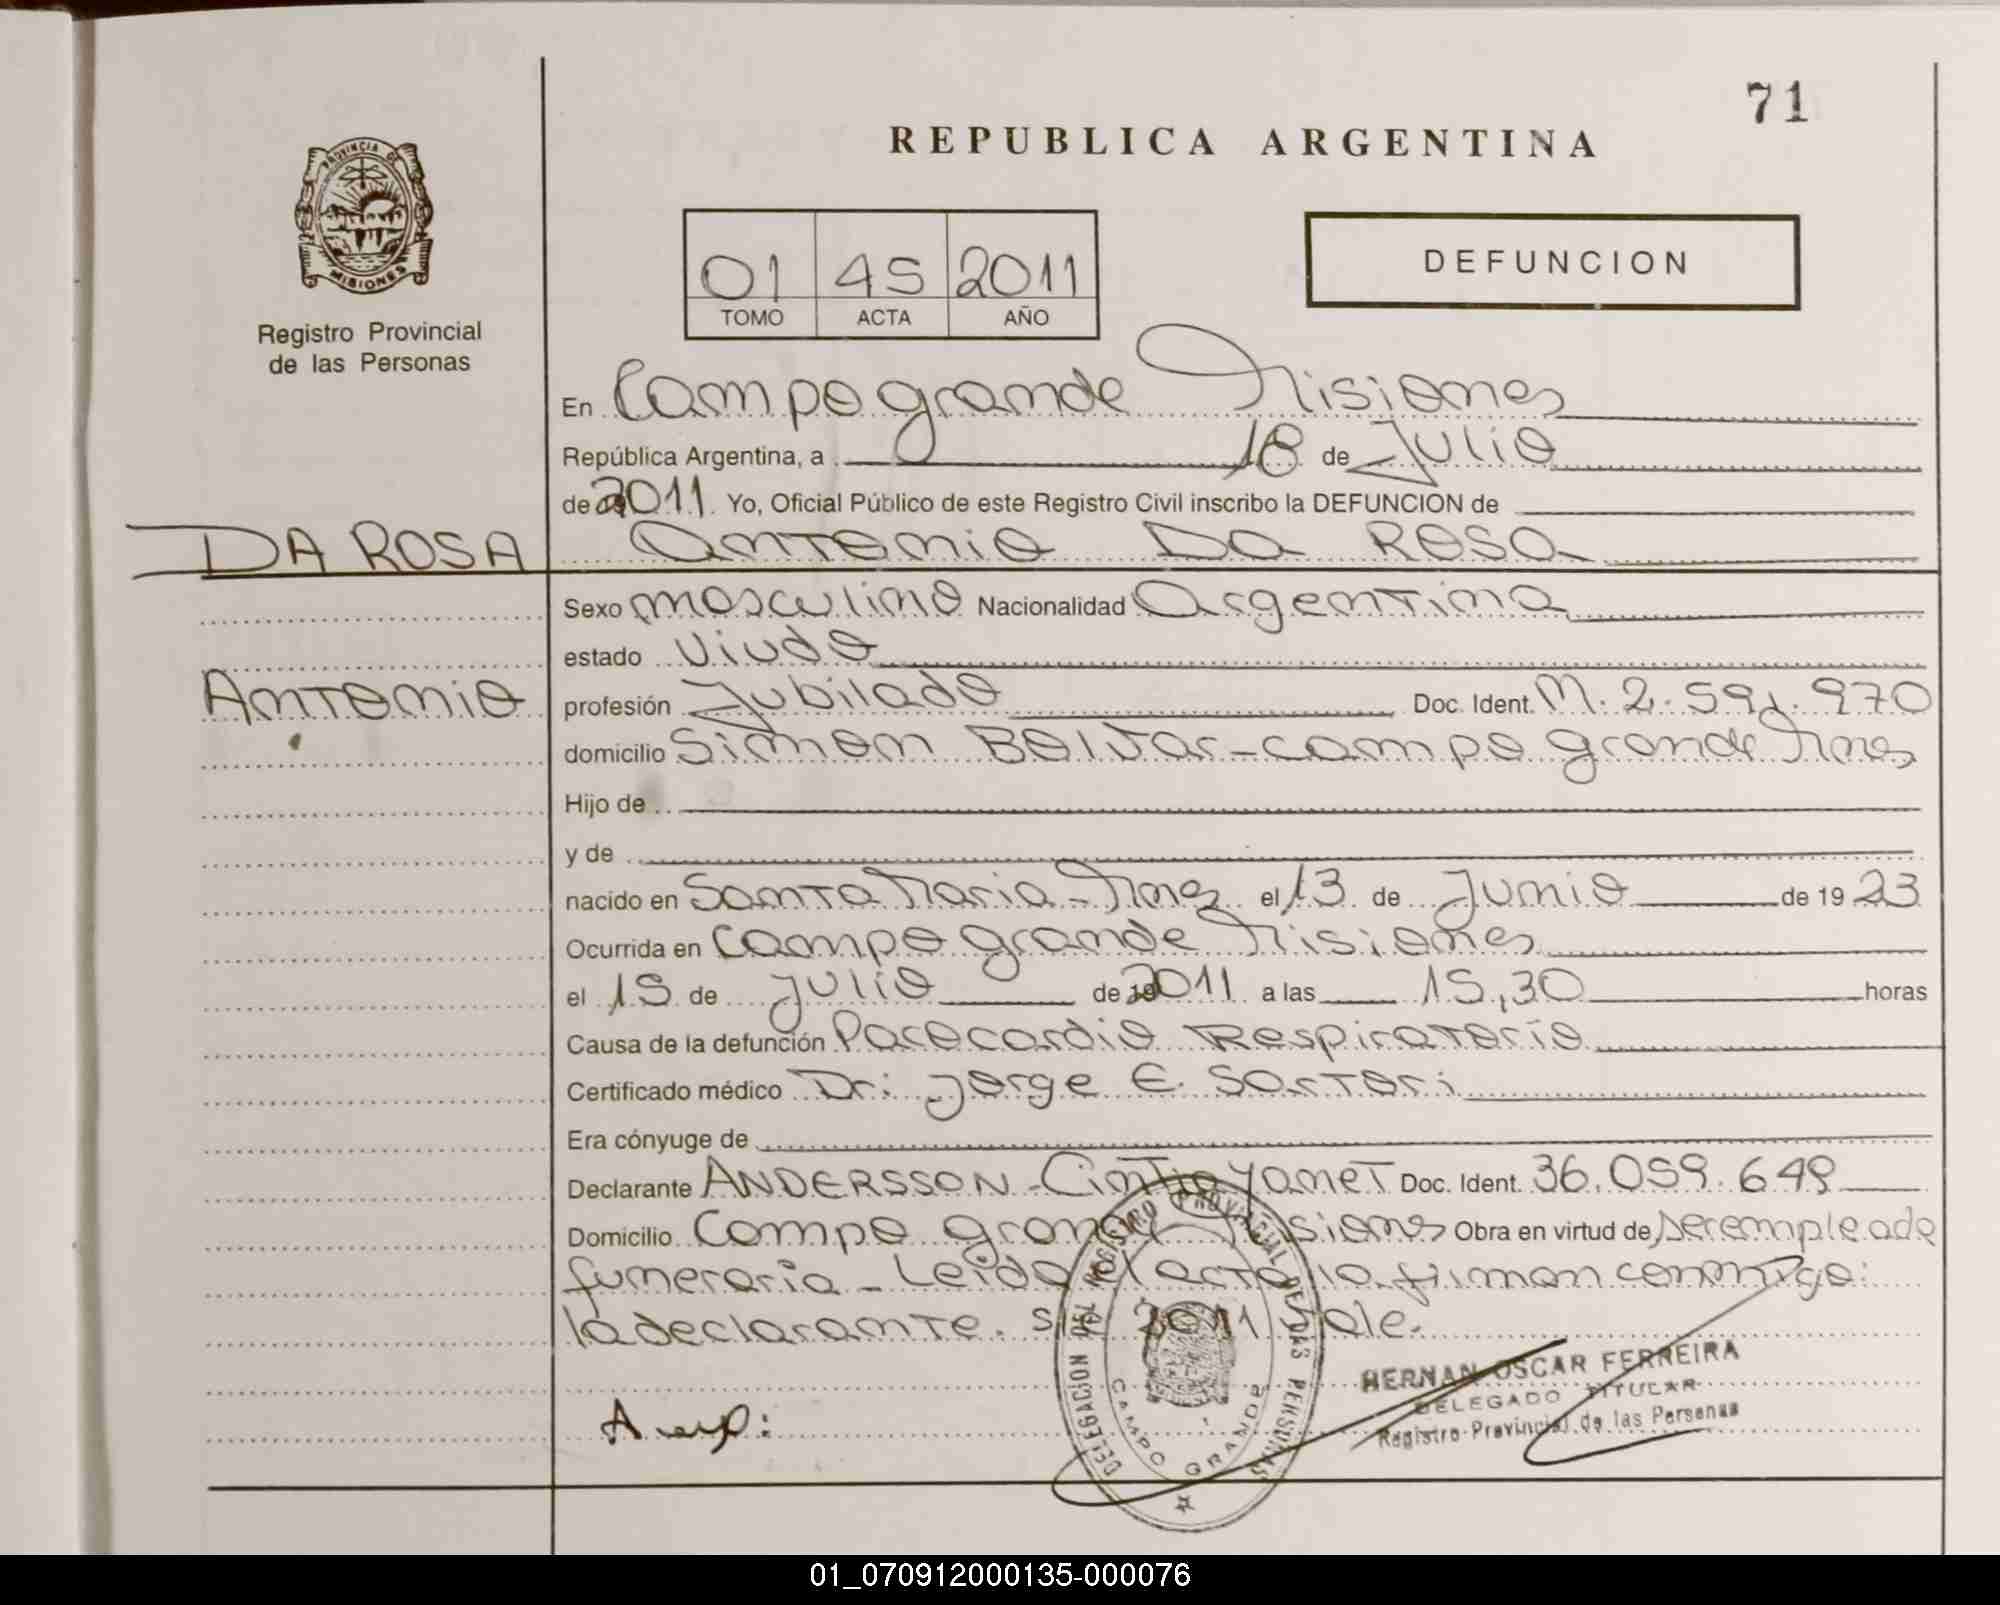 71
REPUBLICA ARGENTINA
PROVINCIA DE
MISIONES
Registro Provincial
de las Personas
01 45 2011
TOMO ACTA AÑO
DEFUNCION
En Campo grande Misiones
República Argentina, a 18 de Julio
de 2011 Yo, Oficial Público de este Registro Civil inscribo la DEFUNCION de
DA ROSA Antonio Da Rosa
Sexo masculino Nacionalidad Argentina
estado Viudo
Antonio profesión Jubilado Doc. Ident. M. 2.591.970
domicilio Simon Bolivar - campo grande Mnes
Hijo de
y de
nacido en Santa Maria - Mnes el 13 de Junio de 19 23
Ocurrida en Campo grande Misiones
el 15 de Julio de 2011 a las 15,30 horas
Causa de la defunción Parocardio Respiratorio
Certificado médico Dr: Jorge E. Sartori
Era cónyuge de
Declarante ANDERSSON - Cintia Yanet Doc. Ident. 36.059.649
Domicilio Campo grande Misiones Obra en virtud de ser empleada
funeraria - Leida el acta la firman conmigo:
la declarante. S/R 2011 Vale.
HERNAN OSCAR FERREIRA
DELEGADO TITULAR
Registro Provincial de las Personas
DELEGACION DEL REGISTRO PROVINCIAL DE LAS PERSONAS
CAMPO GRANDE
01_070912000135-000076